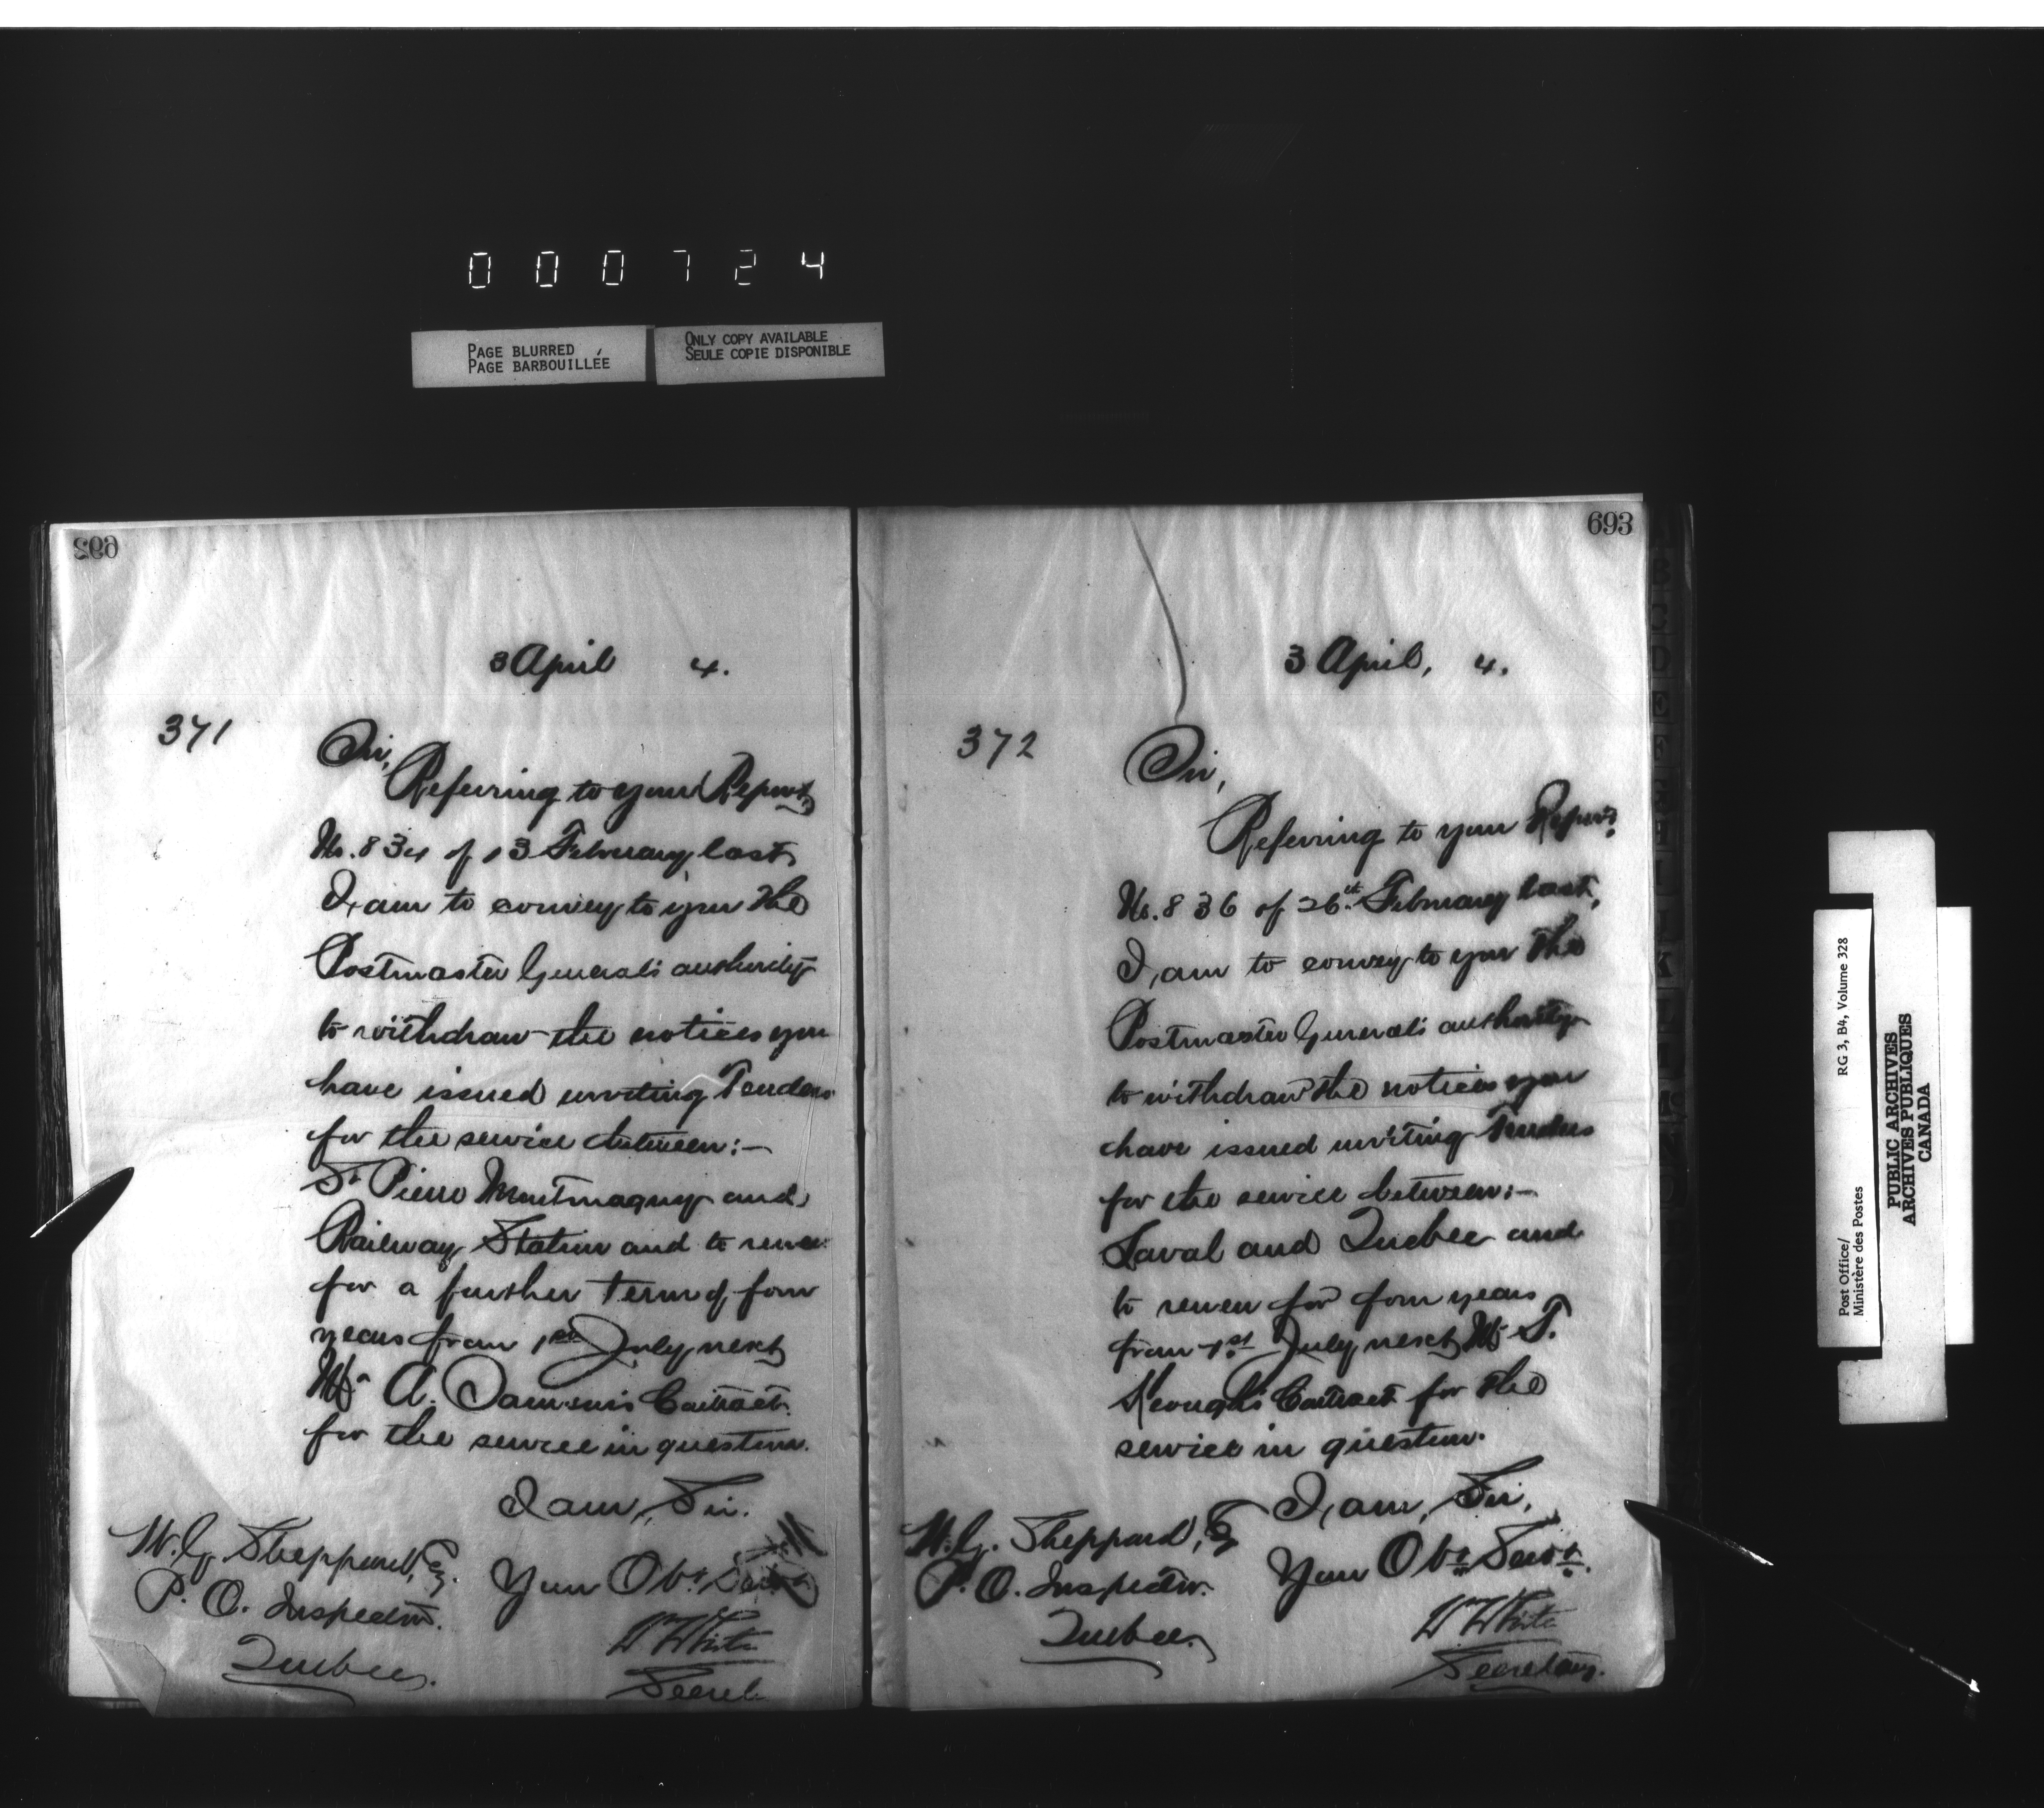 000724
PAGE BLURRED
PAGE BARBOUILLÉE
ONLY COPY AVAILABLE
SEULE COPIE DISPONIBLE
692
3 April 4.
371
Sir,
Referring to your Report
No. 834 of 13 February last,
I am to convey to you the
Postmaster General's authority
to withdraw the notices you
have issued inviting Tenders
for the service between:—
St Pierre Montmagny and
Railway Station and to renew
for a further term of four
years from 1st July next
Mr A. Contract
for the service in question.
I am, Sir.
Your Obt Servt
W White
Secret
W. G. Sheppard, Esq.
P. O. Inspector.
Quebec.
693
3 April, 4.
372
Sir,
Referring to your Report
No. 836 of 26th February last,
I am to convey to you the
Postmaster General's authority
to withdraw the notices you
have issued inviting Tenders
for the service between:—
Laval and Quebec and
to renew for four years
from 1st July next Mr T.
Keough's Contract for the
service in question.
I am, Sir,
Your Obt Servt.
W White
Secretary.
W. G. Sheppard, Esq
P. O. Inspector.
Quebec.
Post Office/
Ministère des Postes
RG 3, B4, Volume 328
PUBLIC ARCHIVES
ARCHIVES PUBLIQUES
CANADA